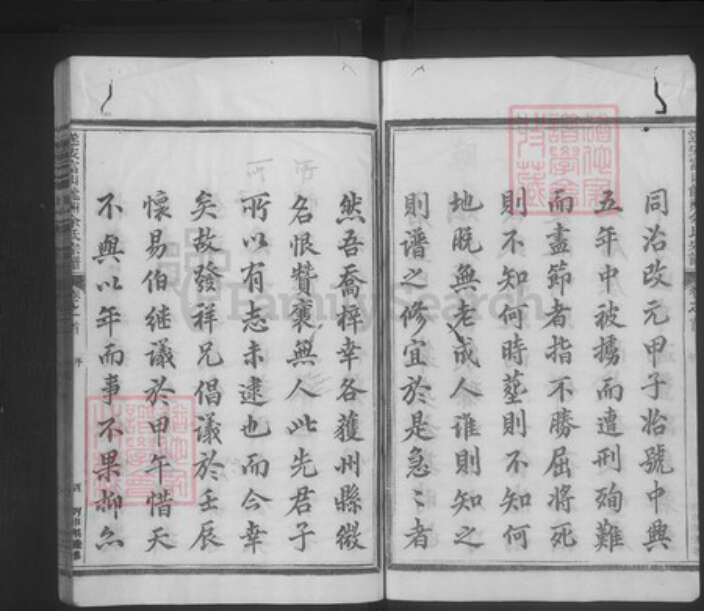 同治改元甲子始號中興
五年中被擄而遭刑殉難
而盡節者指不勝屈將死
則不知何時塟則不知何
地既無老成人誰則知之
則譜之修宜於是急〻者
然吾喬梓幸各獲州縣微
名恨贊襄無人此先君子
所以有志未逮也而今幸
矣故發祥兄倡議於壬辰
懷易伯继議於甲午惜天
不與以年而事不果抑亦
序
FamilySearch